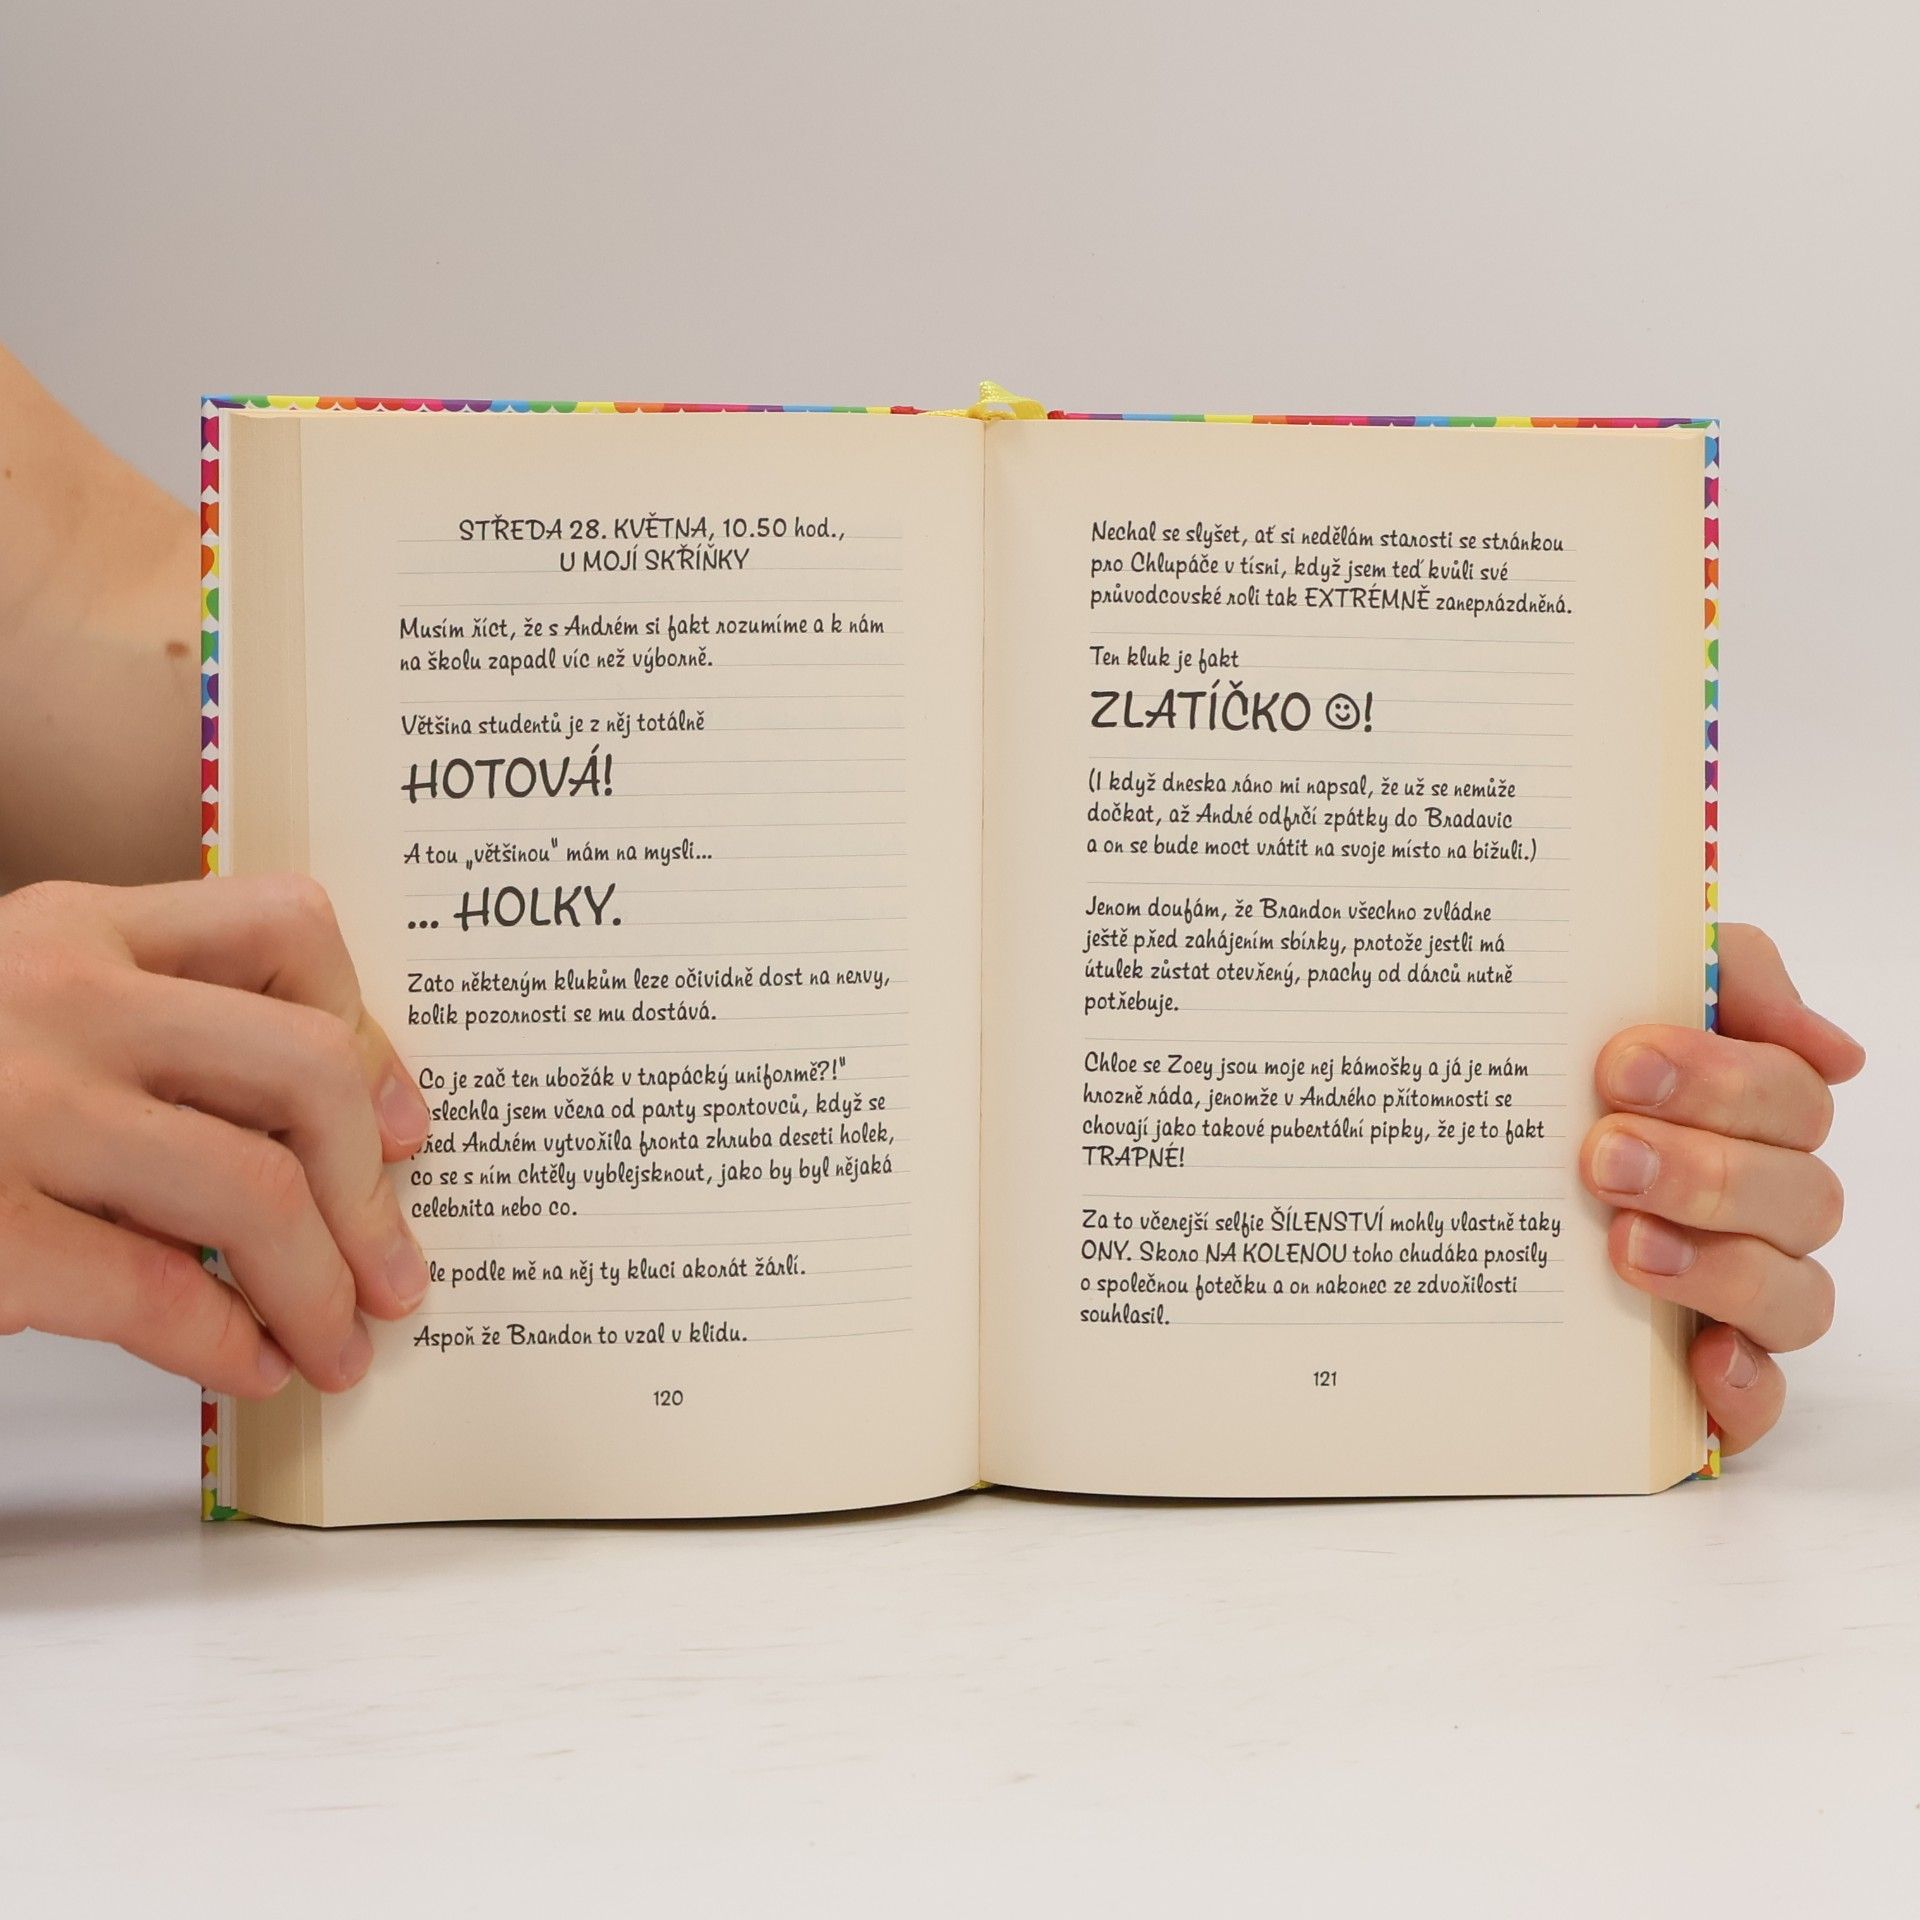 STŘEDA 28. KVĚTNA, 10.50 hod.,
U MOJÍ SKŘÍŇKY
Musím říct, že s Andrém si fakt rozumíme a k nám
na školu zapadl víc než výborně.
Většina studentů je z něj totálně
HOTOVÁ!
A tou „většinou" mám na mysli...
... HOLKY.
Zato některým klukům leze očividně dost na nervy,
kolik pozornosti se mu dostává.
Co je zač ten ubožák v trapácký uniformě?!"
slechla jsem včera od party sportovců, když se
před Andrém vytvořila fronta zhruba deseti holek,
co se s ním chtěly vyblejsknout, jako by byl nějaká
celebrita nebo co.
le podle mě na něj ty kluci akorát žárlí.
Aspoň že Brandon to vzal v klidu.
120
Nechal se slyšet, ať si nedělám starosti se stránkou
pro Chlupáče v tísni, když jsem teď kvůli své
průvodcovské roli tak EXTRÉMNĚ zaneprázdněná.
Ten kluk je fakt
ZLATÍČKO ☺!
(I když dneska ráno mi napsal, že už se nemůže
dočkat, až André odfrčí zpátky do Bradavic
a on se bude moct vrátit na svoje místo na bižuli.)
Jenom doufám, že Brandon všechno zvládne
ještě před zahájením sbírky, protože jestli má
útulek zůstat otevřený, prachy od dárců nutně
potřebuje.
Chloe se Zoey jsou moje nej kámošky a já je mám
hrozně ráda, jenomže v Andrého přítomnosti se
chovají jako takové pubertální pipky, že je to fakt
TRAPNÉ!
Za to včerejší selfie ŠÍLENSTVÍ mohly vlastně taky
ONY. Skoro NA KOLENOU toho chudáka prosily
o společnou fotečku a on nakonec ze zdvořilosti
souhlasil.
121